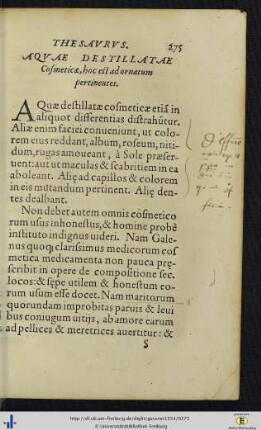 THESAVRVS. 275
AQVAE DESTILLATAE
Cosmeticæ, hoc est ad ornatum
pertinentes.
AQuæ destillatæ cosmeticæ etiã in
aliquot differentias distrahũtur.
Aliæ enim faciei conueniunt, ut colo-
rem eius reddant, album, roseum, niti-
dum, rugas amoueant, à Sole præser-
uent: aut ut maculas & scabritiem in ea
aboleant. Alię ad capillos & colorem
in eis mutandum pertinent. Alię den-
tes dealbant.
Non debet autem omnis cosmetico
rum usus inhonestus, & homine probè
instituto indignus uideri. Nam Gale-
nus quoq; clarissimus medicorum cos
metica medicamenta non pauca prę-
scribit in opere de compositione sec.
locos: & sępe utilem & honestum eo-
rum usum esse docet. Nam maritorum
quorundam improbitas paruis & leui
bus coniugum uitijs, ab amore earum
ad pellices & meretrices auertitur: &
S
http://dl.ub.uni-freiburg.de/diglit/gessner1554/0275
© Universitätsbibliothek Freiburg